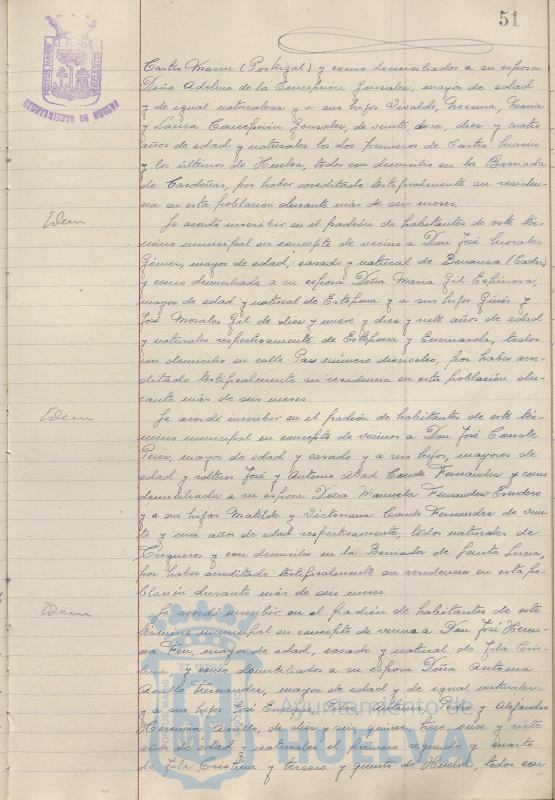 51
Castro Marin (Portugal) y como domiciliados a su esposa
Doña Adelina de la Concepción Gonzales, mayor de edad
y de igual naturaleza y a sus hijos Vivaldo, Noemia, Maria
y Laura Concepción Gonsales, de veinte, doce, diez y cuatro
años de edad y naturales los dos primeros de Castro Marin
y los últimos de Huelva, todos con domicilio en la Barriada
de Cardeñas, por haber acreditado testificalmente su residen-
cia en esta población durante más de seis meses.
Idem
Se acordó inscribir en el padrón de habitantes de este tér-
mino municipal en concepto de vecino a Don José Morales
Gómez, mayor de edad, casado y natural de (Cadiz)
y como domiciliada a su esposa Doña Maria Gil Espinosa,
mayor de edad y natural de Estepona y a sus hijos Ginés y
José Morales Gil de diez y nueve y diez y siete años de edad
y naturales respectivamente de Estepona y Encinasola, todos
con domicilio en calle Paz número dieciocho, por haber acre-
ditado testificalmente su residencia en esta población du-
rante más de seis meses.
Idem
Se acordó inscribir en el padrón de habitantes de este tér-
mino municipal en concepto de vecinos a Don José Conde
Perez, mayor de edad y casado y a sus hijos, mayores de
edad y solteros José y Antonio Abad Conde Fernandez y como
domiciliada a su esposa Doña Manuela Fernandez Escudero
y a sus hijas Matilde y Victoriana Conde Fernandez de vein-
te y once años de edad respectivamente, todos naturales de
Trigueros y con domicilio en la Barriada de Santa Lucia,
por haber acreditado testificalmente su residencia en esta po-
blación durante más de seis meses.
Idem
Se acordó inscribir en el padrón de habitantes de este
término municipal en concepto de vecino a Don José
mayor de edad, casado y natural de Isla Cris-
tina, y como domiciliados a su esposa Doña Antonia
Fernandez, mayor de edad y de igual naturaleza
y a sus hijos José Enrique, Antonia, y Alejandro
de diez y seis, quince, trece, once y siete
años de edad y naturales el primero segundo y cuarto
de Isla Cristina y tercero y quinto de Huelva, todos con
PORTUS MARIS
Ayuntamiento de
HUELVA